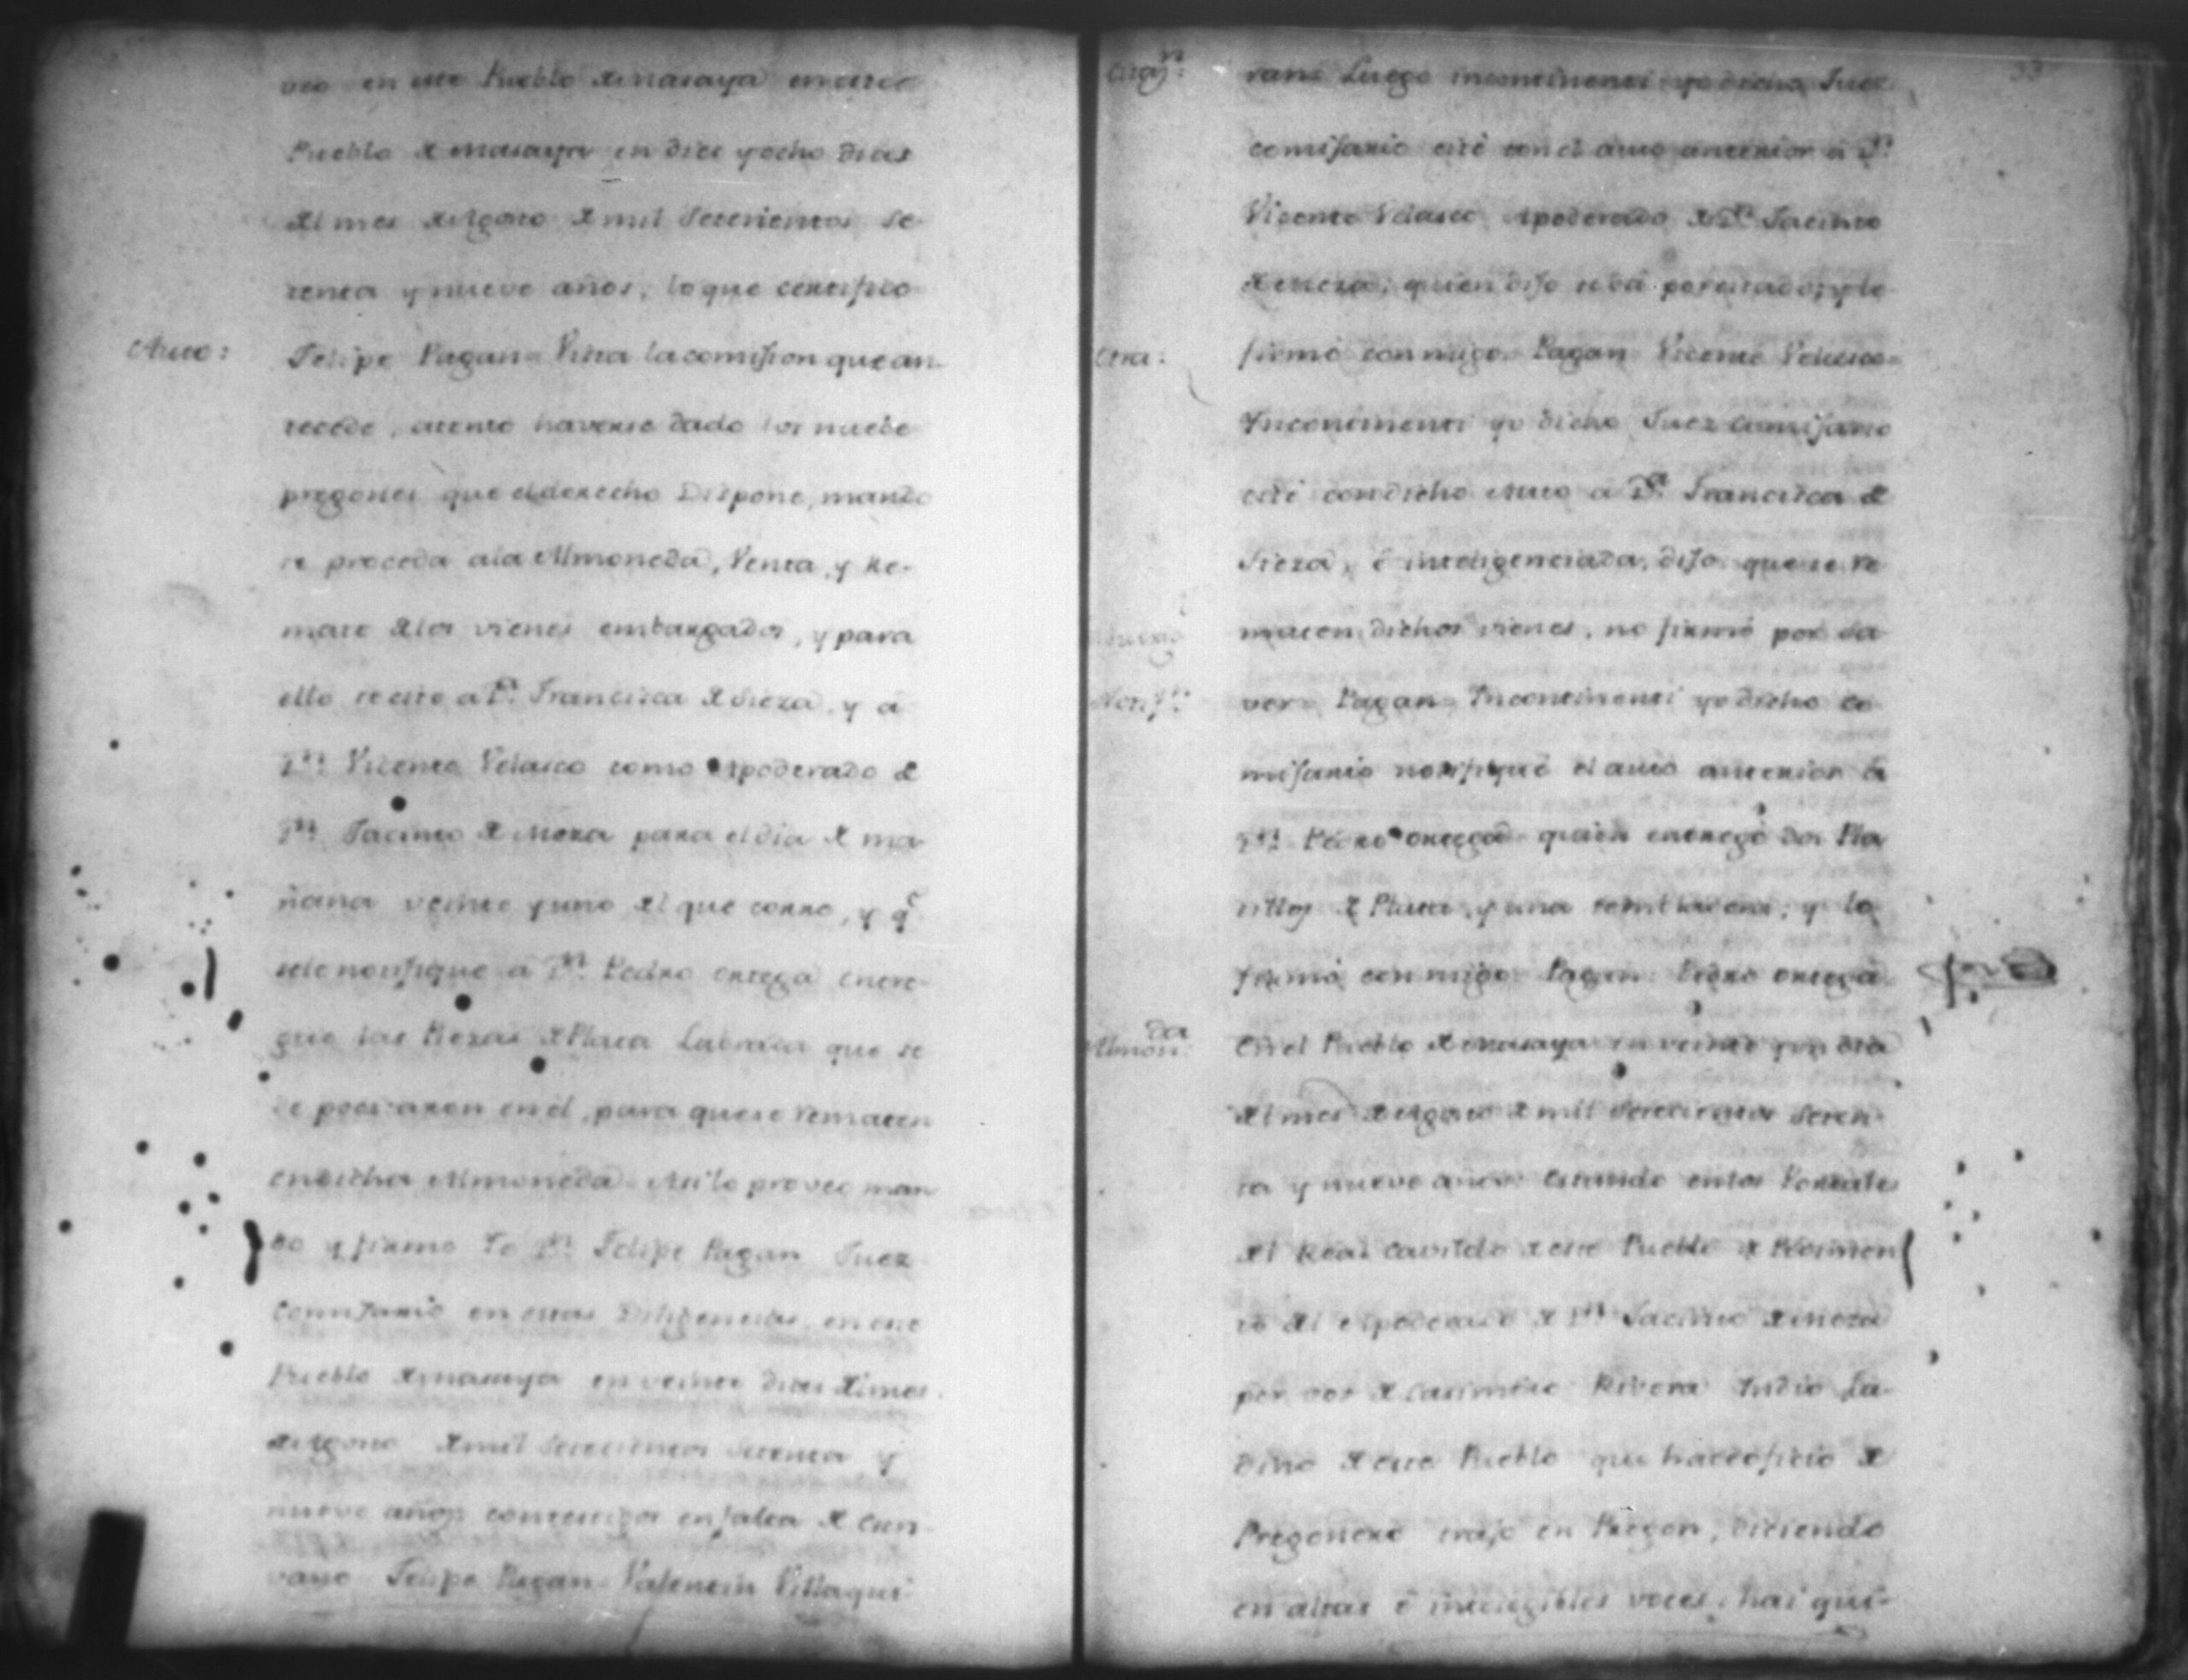 veo en este Pueblo de Masaya en este
Pueblo de Masaya en diez y ocho dias
del mes de Agosto de mil Setecientos Se-
tenta y nueve años, lo que certifico
Auto:
Felipe Pagan = Vista la comision que an-
tecede, atento haverse dado los nuebe
pregones que el derecho Dispone, mando
se proceda a la Almoneda, Venta, y Re-
mate de los vienes embargados, y para
ello se cite a Dª. Francisca de Sieza, y á
Dn. Vicente Velasco como Apoderado de
Dn. Jacinto de Meza para el dia de ma-
ñana veinte y uno del que corre, y q̃
sele notifique a Dn. Pedro ortega entre-
gue las Piezas de Plata Labrada que se
de pocitaron en el, para que se Rematen
en dicha Almoneda. Asi lo proveo man
do y firmo Yo Dn. Felipe Pagan Juez
Comisario en estas Diligencias, en este
Pueblo de Masaya en veinte dias del mes
de Agosto de mil Setecientos setenta y
nueve años con testigos en falta de Escri-
vano Felipe Pagan = Valentin Villaqui
Citazn:
ran = Luego incontinenti yo dicho Juez
comisario cité con el auto anterior a Dn.
Vicente Velasco Apoderado de Dn. Jacinto
de Meza, quien dijo se dá por citado, y lo
Otra:
firmó conmigo = Pagan = Vicente Velasco =
Yncontinenti yo dicho Juez Comisario
cité con dicho Auto a Dª. Francisca de
Sieza, é inteligenciada, dijo que se Re
maten dichos vienes, no firmó por no sa
Notifn:
ver = Pagan = Yncontinenti yo dicho Co
misario notifiqué el auto anterior á
Dn. Pedro ortega quien entregó dos Pla
tillos de Plata, y una ; y lo
firmó conmigo = Pagan = Pedro ortega =
Almonda.
En el Pueblo de Masaya en veinte y un dia
del mes de Agosto de mil Setecientos Seten-
ta y nueve años: Estando en los Portales
del Real Cavildo de este Pueblo de Pedimen
to del Apoderado de Dn. Jacinto de Meza
por vos de Casimiro Rivera Yndio La-
dino de este Pueblo que hace oficio de
Pregonero trajo en Pregon, diciendo
en altas é inteligibles voces, hai qui-